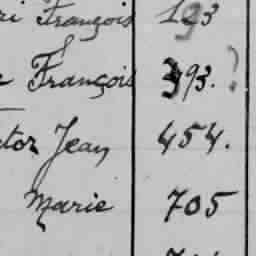 ri François 123
François 393. ?
ctor Jean 454.
Marie 705